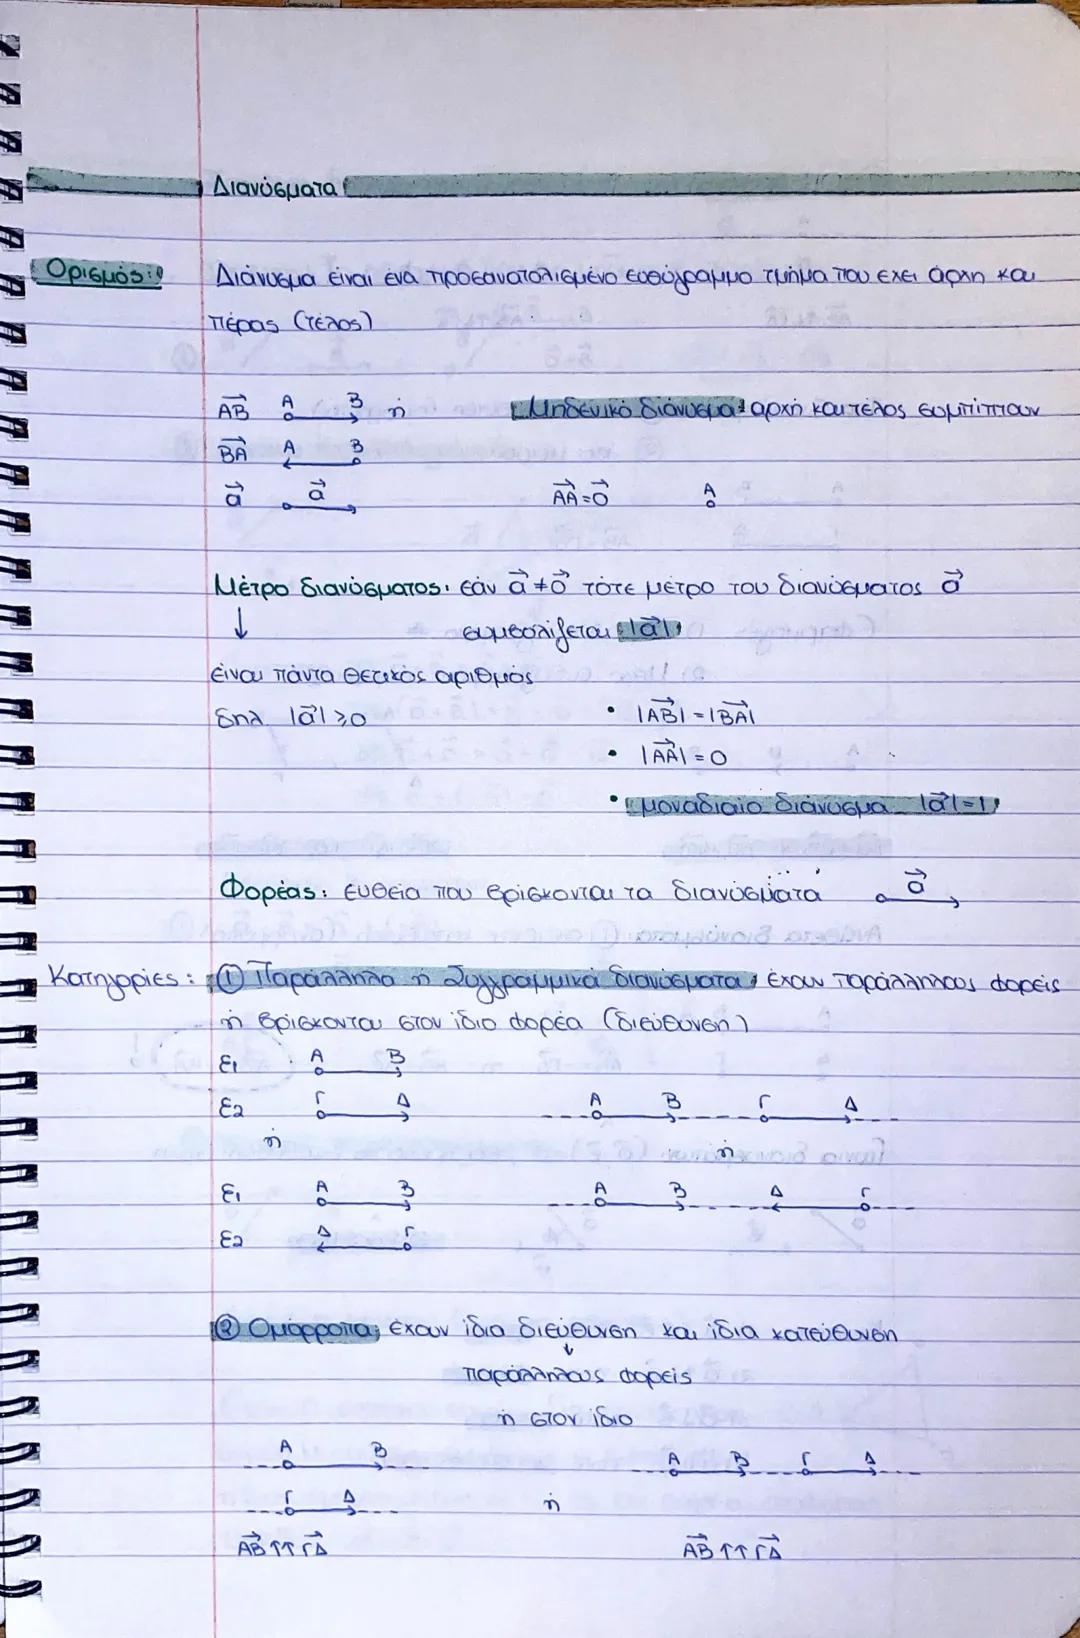 Διανύσματα
Ορισμός: Διάνυσμα είναι ένα προσανατολισμένο ευθύγραμμο τμήμα που έχει αρχή και
πέρας (τέλος)
A B
AB⃗ ή Μηδενικό διάνυσμα: αρχή και τέλος συμπίπτουν
BA⃗ A B
a⃗ a⃗ AA⃗=0⃗ A
Μέτρο διανύσματος: εάν a⃗≠0⃗ τότε μέτρο του διανύσματος a⃗
↓ συμβολίζεται |a⃗|
είναι πάντα θετικός αριθμός
δηλ |a⃗|≥0 • |AB⃗|=|BA⃗|
• |AA⃗|=0
• μοναδιαίο διάνυσμα |a⃗|=1
Φορέας: ευθεία που βρίσκονται τα διανύσματα a⃗
Κατηγορίες: ① Παράλληλα ή Συγγραμμικά διανύσματα: έχουν παράλληλους φορείς
ή βρίσκονται στον ίδιο φορέα (διεύθυνση)
ε1 A B
ε2 Γ Δ A B Γ Δ
ή ή
ε1 A B A B Δ Γ
ε2 Δ Γ
② Ομόρροπα: έχουν ίδια διεύθυνση και ίδια κατεύθυνση
↓
παράλληλους φορείς
ή στον ίδιο
A B A B Γ Δ
Γ Δ ή
AB⃗ ↑↑ ΓΔ⃗ AB⃗ ↑↑ ΓΔ⃗